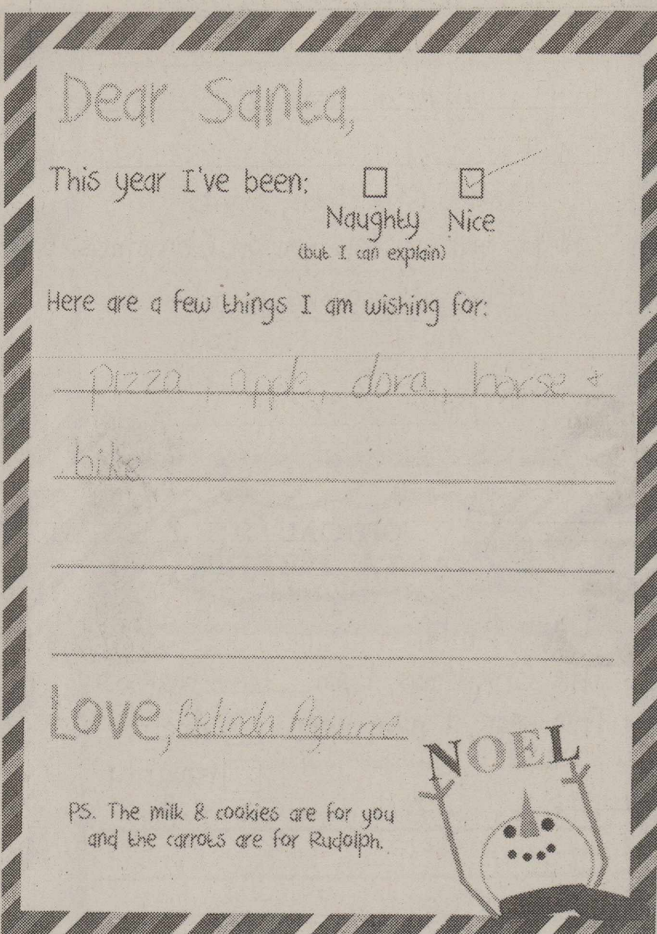 Dear Santa,
This year I've been:
Naughty Nice
(but I can explain)
Here are a few things I am wishing for:
pizza, apple, dora, horse +
bike
Love, Belinda Aguirre
NOEL
PS. The milk & cookies are for you
and the carrots are for Rudolph.